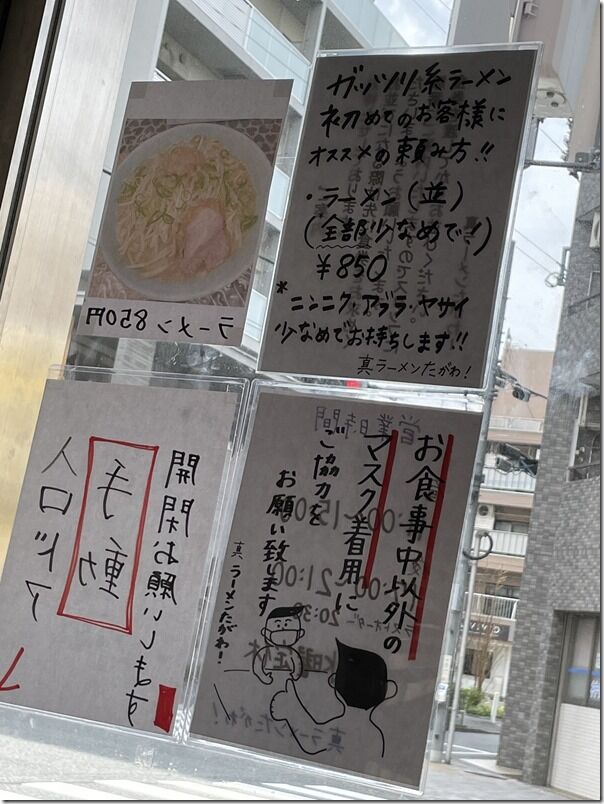 ラーメン 850円
ガッツリ系ラーメン
初めてのお客様に
オススメの頼み方!!
・ラーメン(並)
(全部少なめで!)
¥850
*ニンニク アブラ・ヤサイ
少なめでお持ちします!!
真ラーメンたがわ!
入口ドア
手動
開閉お願いします
お食事中以外の
マスク着用に
ご協力を
お願い致します
真ラーメンたがわ!
営業時間
ラストオーダー 20:30
水曜定休
真ラーメンたがわ!